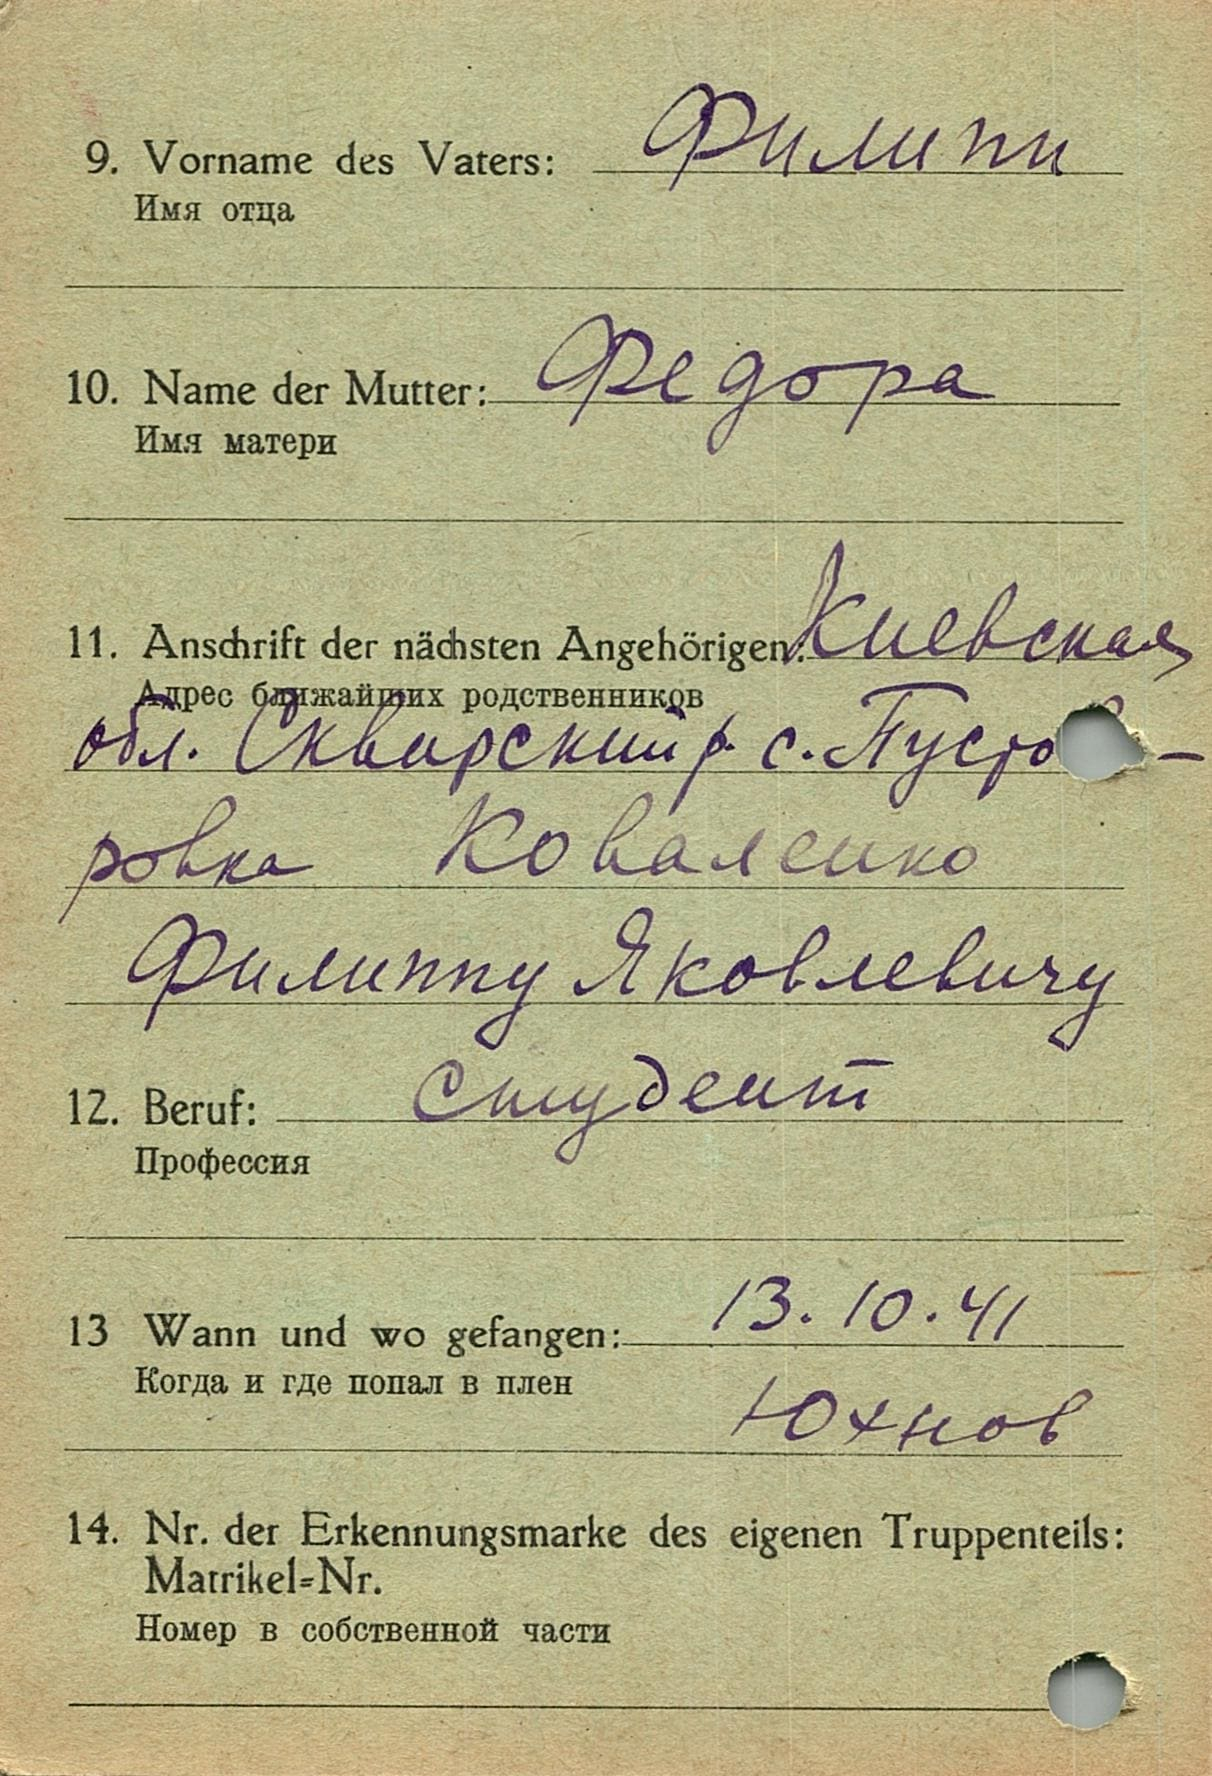 9. Vorname des Vaters: Филипп
Имя отца
10. Name der Mutter: Федора
Имя матери
11. Anschrift der nächsten Angehörigen: Киевская
Адрес ближайших родственников
обл. Сквирский р. с.
ровка Коваленко
Филиппу Яковлевичу
12. Beruf: Студент
Профессия
13 Wann und wo gefangen: 13.10.41
Когда и где попал в плен
Юхнов
14. Nr. der Erkennungsmarke des eigenen Truppenteils:
Matrikel=Nr.
Номер в собственной части